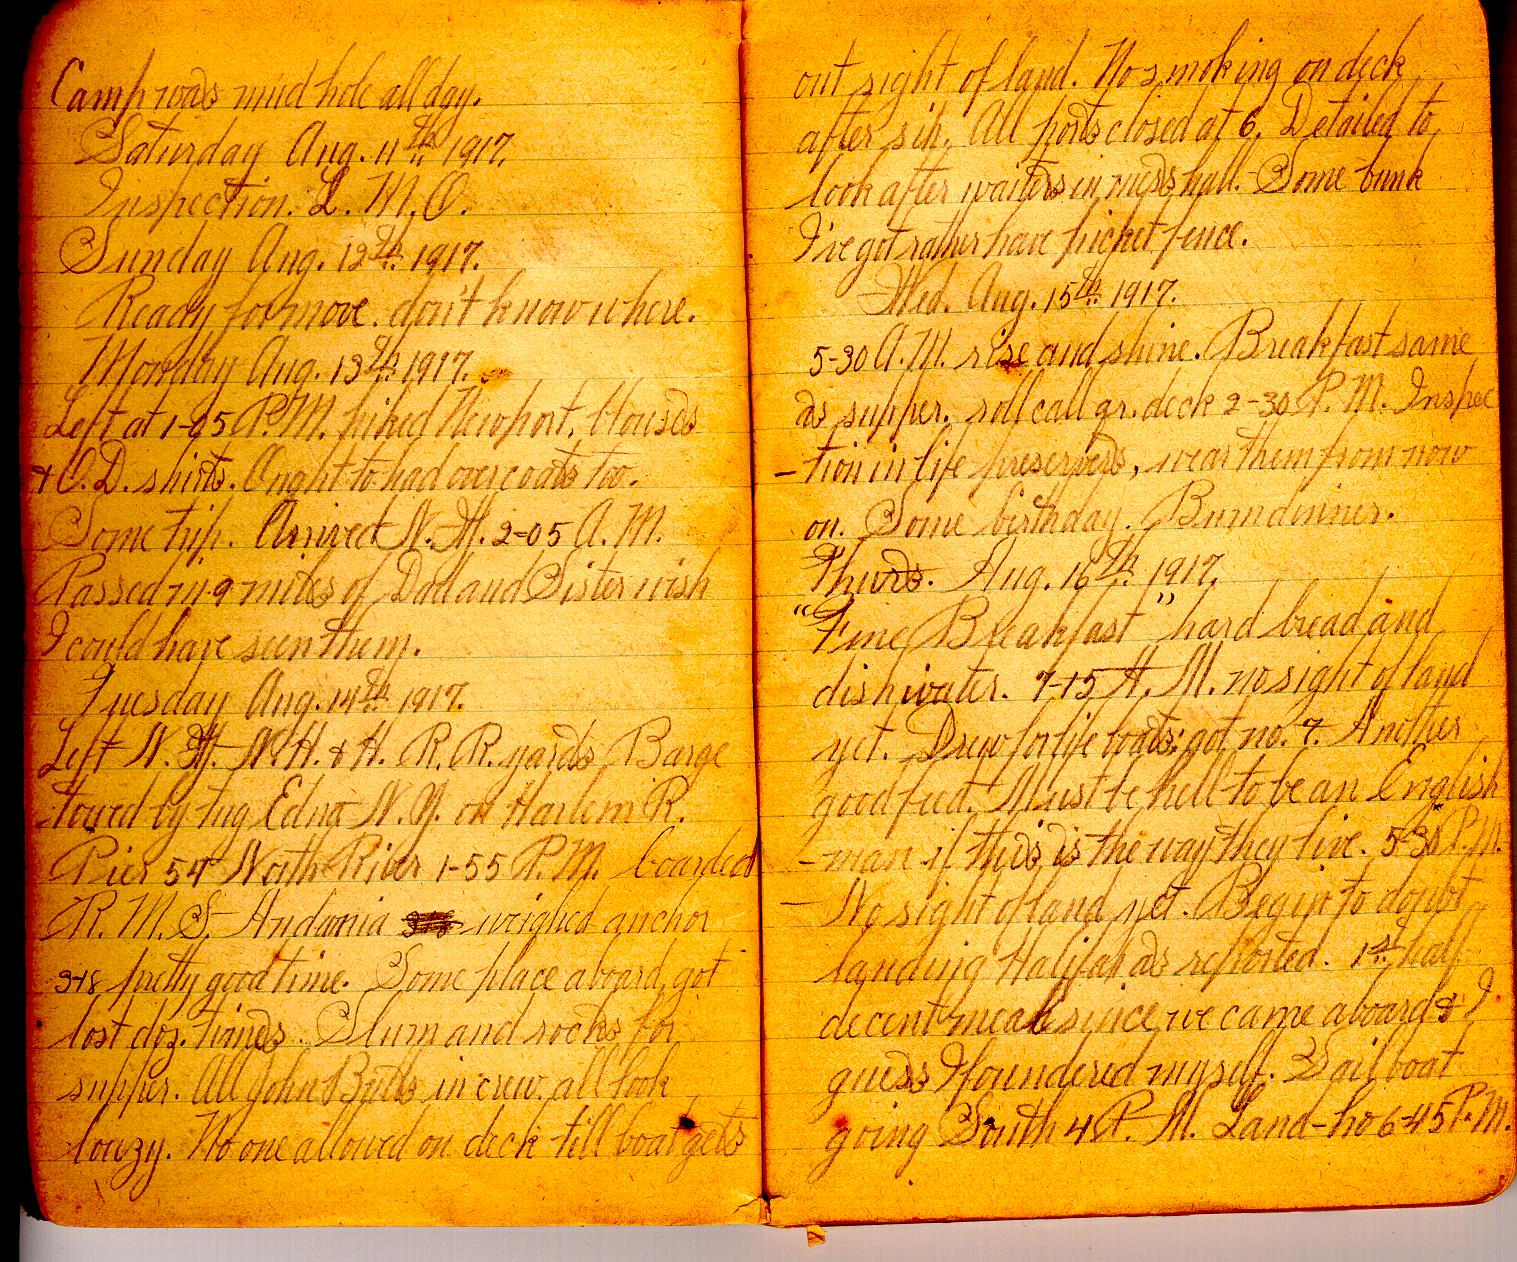 Camp was mud hole all day.
Saturday Aug. 11th 1917.
Inspection. L. M. O.
Sunday Aug. 12th 1917.
Ready for move. don't know where.
Monday Aug. 13th 1917.
Left at 1-05 P.M. hiked Newport, blouses
& O.D. shirts. Ought to had overcoats too.
Some trip. Arrived N.H. 2-05 A.M.
Passed in 9 miles of Dad and Sister wish
I could have seen them.
Tuesday Aug. 14th 1917.
Left N.H. N.H. & H. R.R. yards Barge
towed by tug Edna N.Y. on Harlem R.
Pier 54 North River 1-55 P.M. boarded
R.M.S. Andania weighed anchor
3-18 pretty good time. Some place aboard, got
lost doz. times. Slum and socks for
supper. All John Bulls in crew. all look
lowzy. No one allowed on deck till boat gets
out sight of land. No smoking on deck
after six. All ports closed at 6. Detailed to
look after waiters in mess hall. Some bunk
I've got rather have picket fence.
Wed. Aug. 15th 1917.
5-30 A.M. rise and shine. Breakfast same
as supper. roll call qr. deck 2-30 P.M. Inspec
-tion in life preservers, wear them from now
on. Some birthday. Bum dinner.
Thurs. Aug. 16th 1917.
"Fine Breakfast" hard bread and
dishwater. 7-15 A.M. no sight of land
yet. Drew for life boats; got no. 7. Another
good feed. Must be hell to be an English
-man if this is the way they live. 5-30 P.M.
- No sight of land yet. Begin to doubt
landing Halifax as reported. 1st half
decent meal since we came aboard & I
guess I foundered myself. Sail boat
going South 4 P.M. Land-ho 6-45 P.M.